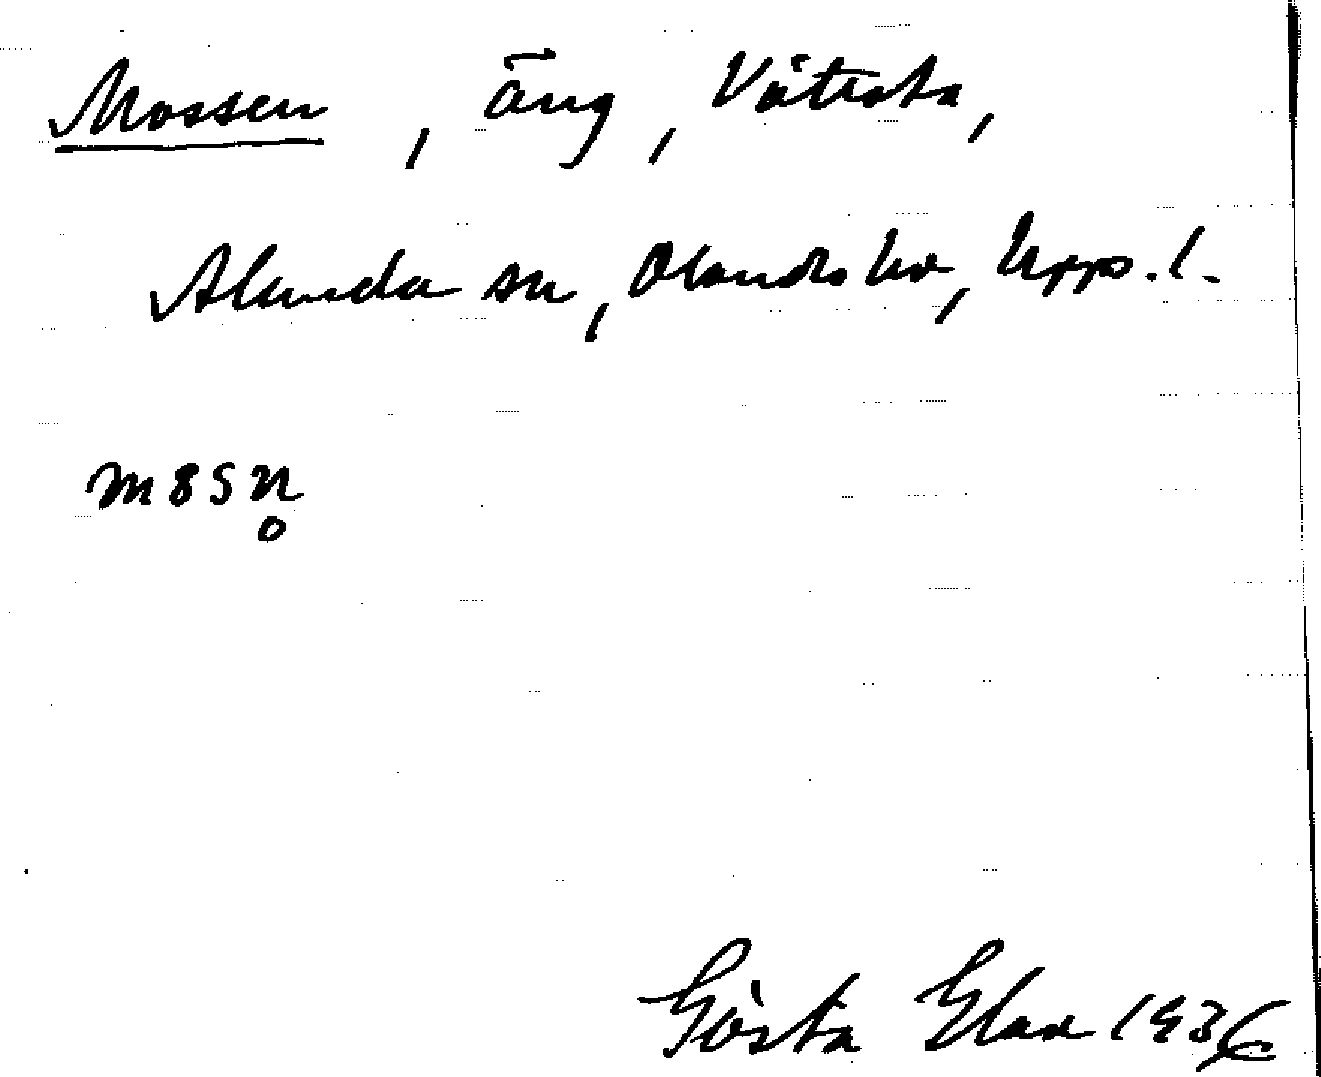 Mossen, äng, Vättsta,
Alunda sn, Olands hd, Uppl.
m8sn̥
Gösta Elax 1936